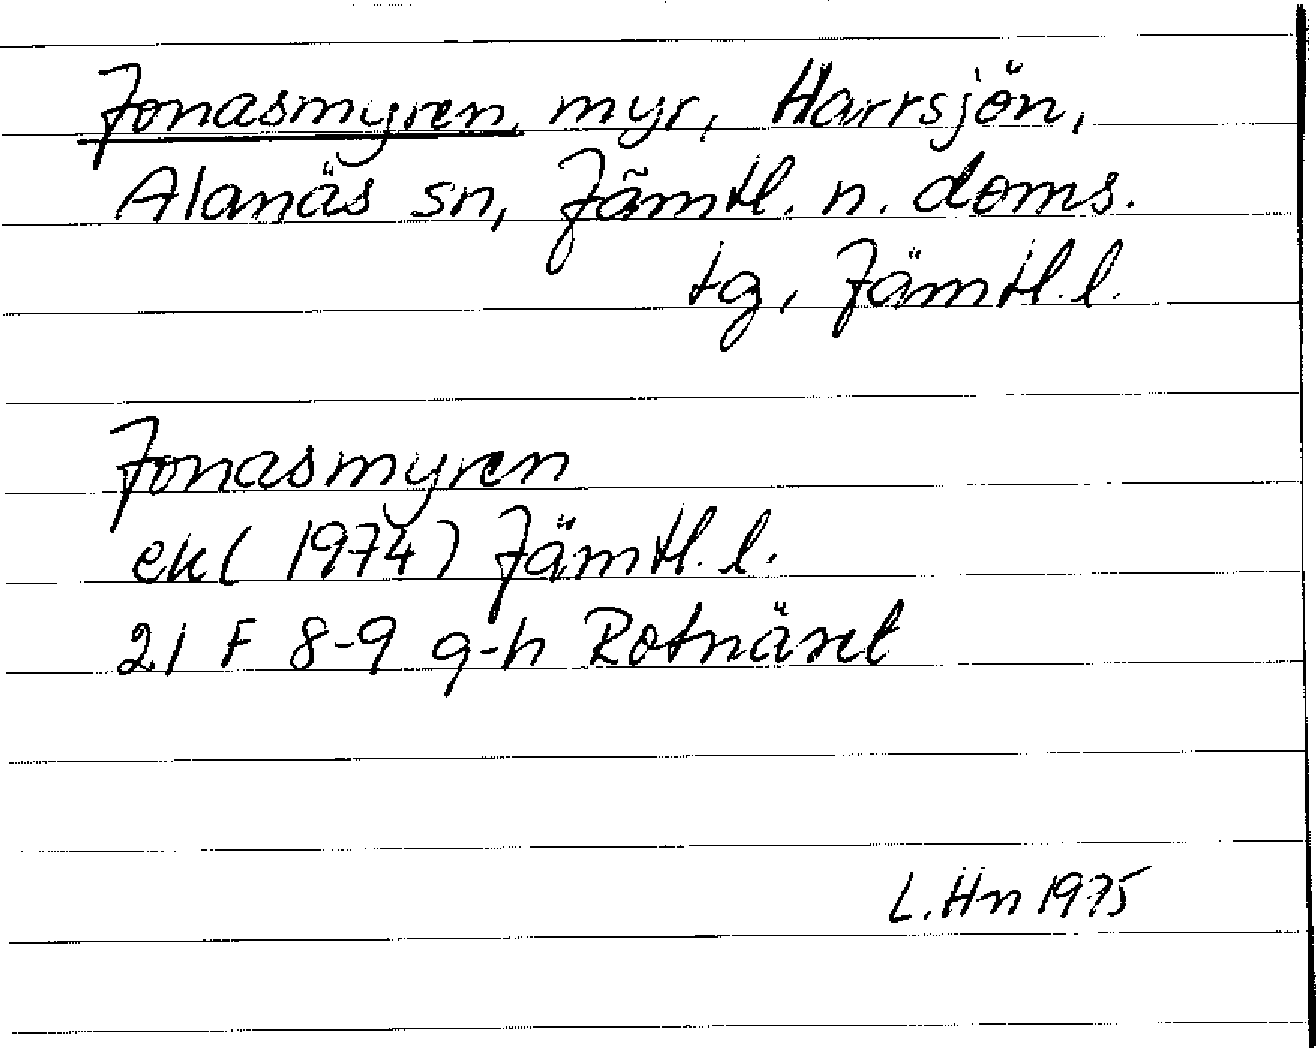 Jonasmyren, myr, Harrsjön,
Alanäs sn, Jämtl. n. doms.
tg, Jämtl. l.
Jonasmyren
ek (1974) Jämtl. l.
21 F 8-9 g-h Rotnäset
L. Hn 1975